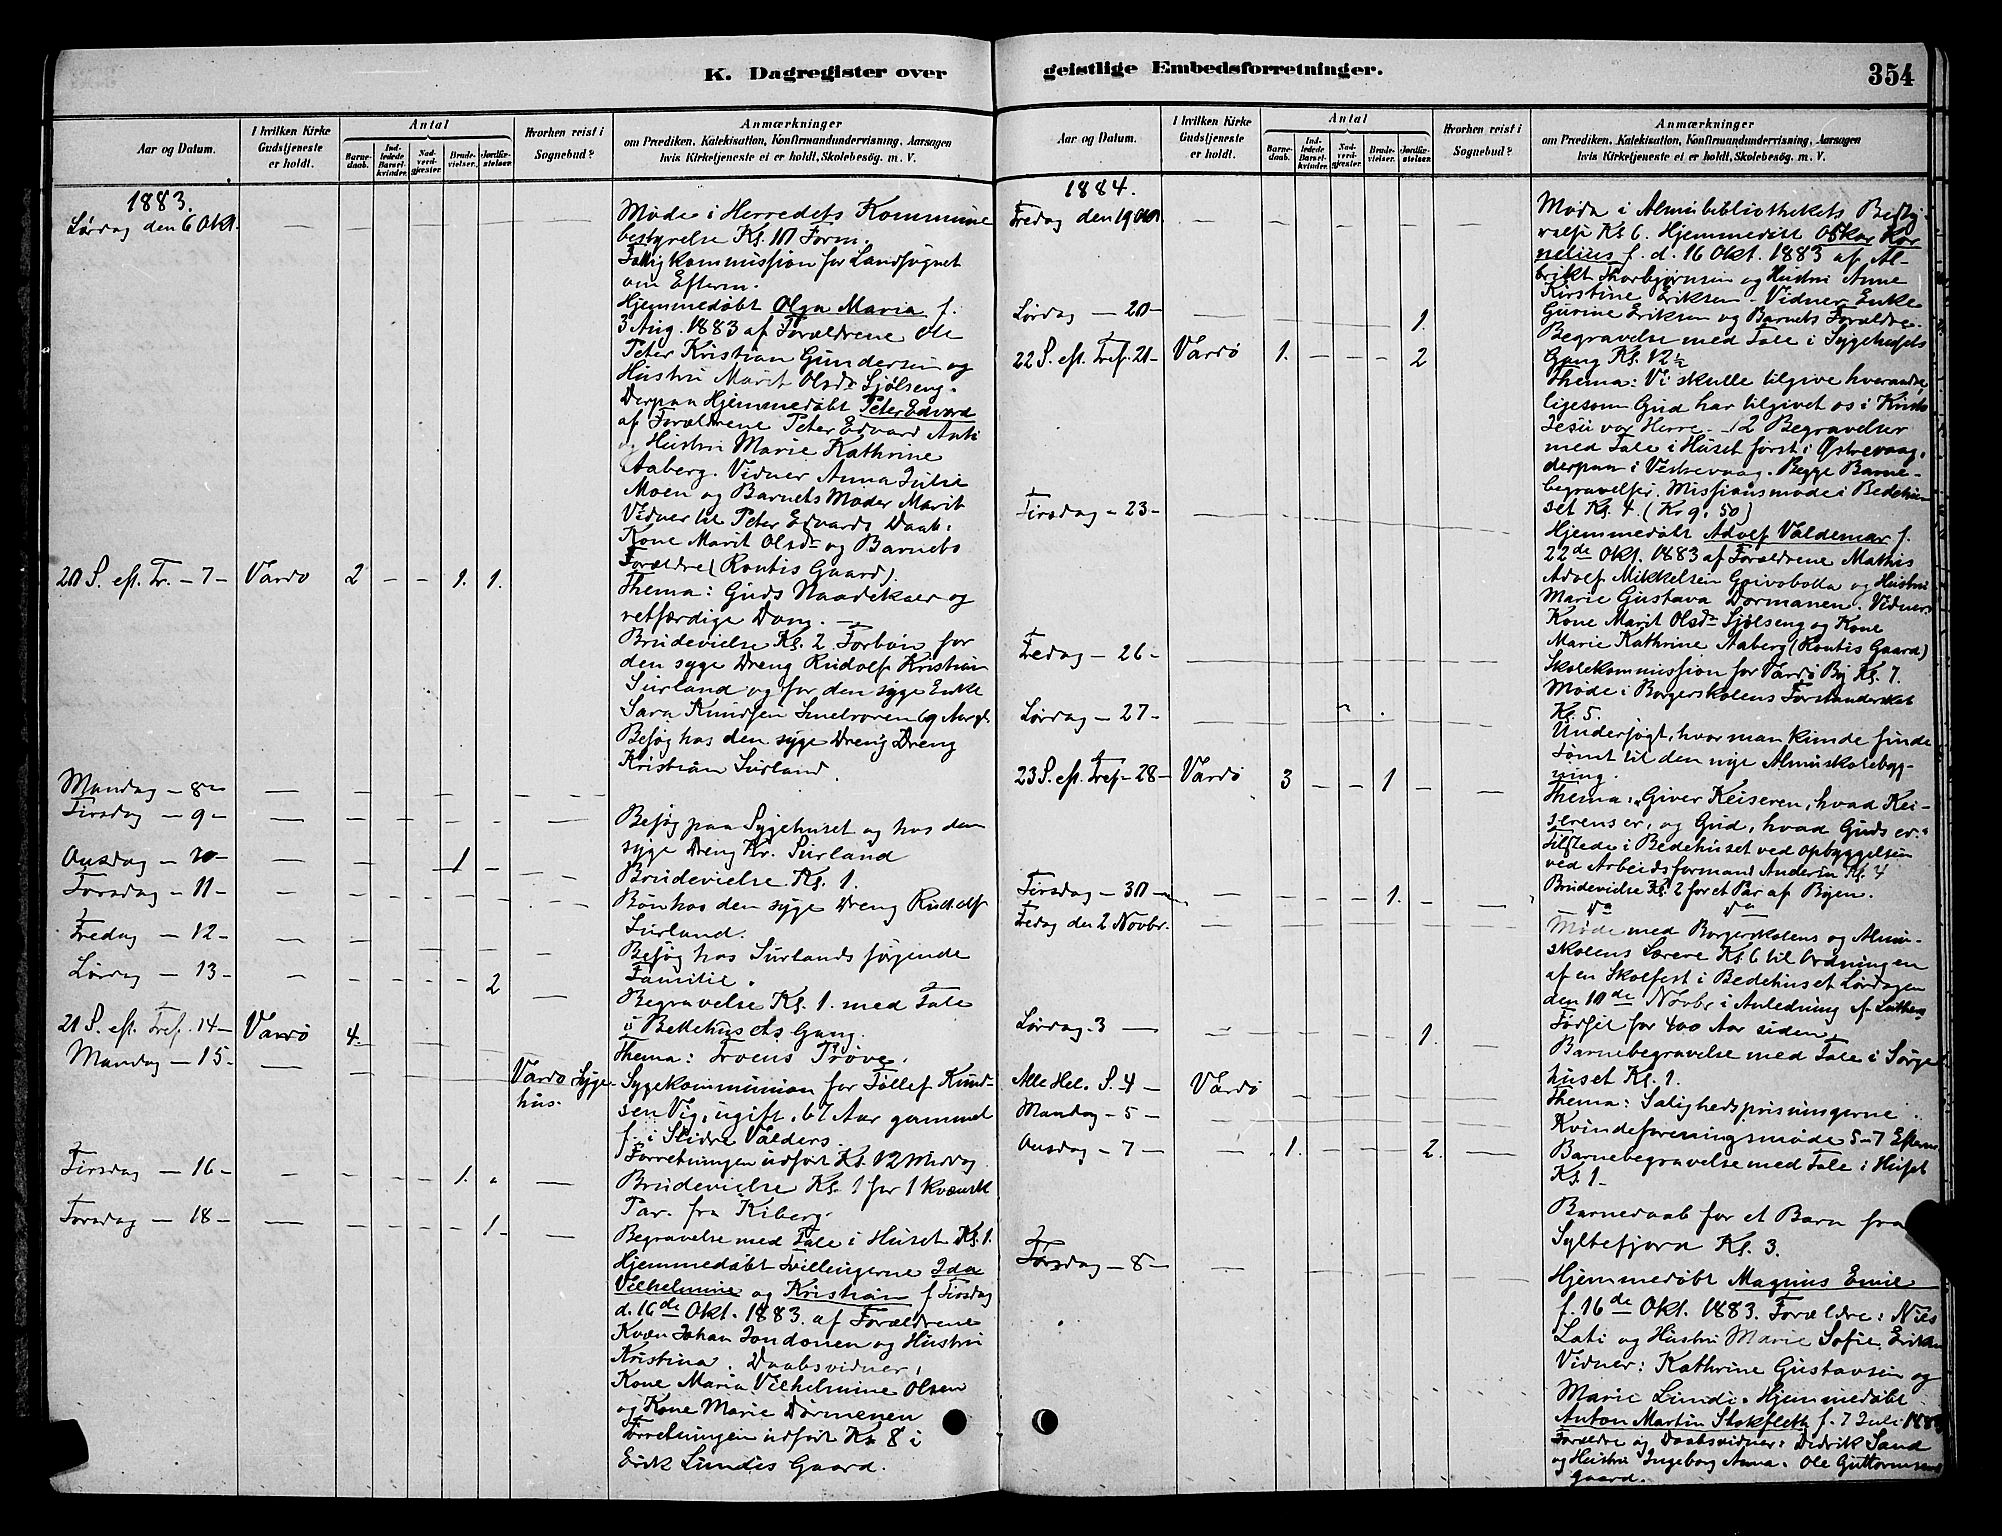 K. Dagregister over
Aar og Datum.
I hvilken Kirke Gudstjeneste er holdt.
Antal
Barnedaab.
Indledede Barselkvinder.
Nadverdgjæster.
Brudevielser.
Jordfæstelser.
Hvorhen reist i Sognebud?
Anmærkninger
om Prædiken, Katekisation, Konfirmandundervisning, Aarsagen
hvis Kirketjeneste ei er holdt, Skolebesøg. m. V.
1883.
Lørdag den 6 Okt.
Møde i Herredets Kommune
bestyrelse Kl. 10 Form.
Fattigkommission for Landsognet
om Efterm.
Hjemmedøbt Olga Maria f.
3 Aug. 1883 af Forældrene Ole
Peter Kristian Gundersen og
Hustru Marit Olsdr Sjølseng.
Derpaa Hjemmedøbt Peter Edvard
af Forældrene Peter Edvard Anti
og Hustru Marie Kathrine
Aaberg. Vidner Anna Julie
Moen og Barnets Moder Marit
Vidner til Peter Edvards Daab:
Kone Marit Olsdr og Barnets
Forældre (Rontis Gaard).
20 S. eft. Tr. - 7 - Vardø 2 - - 1. 1.
Thema: Guds Naadekaar og
retfærdige Dom. —
Brudevielse Kl. 2 Forbøn for
den syge Dreng Rudolf Kristian
Surland og for den syge Enke
Sara Knudsen 69 Aar gl.
Besøg hos den syge Dreng Dreng
Kristian Surland.
Mandag - 8 -
Tirsdag - 9 -
Besøg paa Sygehuset og hos den
syge Dreng Kr. Surland
Onsdag - 10 - 1
Brudevielse Kl. 1.
Torsdag - 11 -
Bøn hos den syge Dreng Rudolf
Surland.
Fredag - 12 -
Besøg hos Surlands sørgende
Familie.
Lørdag - 13 - 2
Begravelse Kl. 1. med Tale
i Bedehusets Gang.
21 S. eft. Tref. 14 - Vardø 4.
Thema: Troens Prøve.
Mandag - 15 -
Vardø Sygehus.
Sygekommunion for Tollef Knud-
sen Vig, ugift, 67 Aar gammel
f. i Slidre Valders.
Forretningen udført Kl. 12 Middag
Tirsdag - 16 - 1.
Brudevielse Kl. 1 for 1 kvænsk
Par fra Kiberg.
Torsdag - 18 - 1 -
Begravelse med Tale i Huset Kl. 1.
Hjemmedøbt Tvillingerne Ida
Vilhelmine og Kristian f. Tirsdag
d. 16de Okt. 1883. af Forældrene
Kvæn Johan Jondonen og Hustru
Kristina. Daabsvidner:
Kone Maria Vilhelmine Olsen
og Kone Marie Dørmenen
Forretningen udført Kl. 8 i
Erik Lundis Gaard.
geistlige Embedsforretninger.
354
Aar og Datum.
I hvilken Kirke Gudstjeneste er holdt.
Antal
Barnedaab.
Indledede Barselkvinder.
Nadverdgjæster.
Brudevielser.
Jordfæstelser.
Hvorhen reist i Sognebud?
Anmærkninger
om Prædiken, Katekisation, Konfirmandundervisning, Aarsagen
hvis Kirketjeneste ei er holdt, Skolebesøg. m. V.
1884.
Fredag den 19 Okt.
Møde i Almubibliothekets Besty-
relse Kl. 6. Hjemmedøbt Oskar Kor
nelius f. d. 16 Okt. 1883 af Al-
brikt Thorbjørnsen og Hustru Anne
Kirstine Eriksen. Vidner Enke
Gurine Eriksen og Barnets Forældre.
Lørdag - 20 - 1.
Begravelse med Tale i Sygehusets
Gang Kl. 12½
22 S. eft. Tref. 21 - Vardø 1. - - - 2
Thema: Vi skulle tilgive hverandre,
ligesom Gud har tilgivet os i Kristo
Jesu vor Herre. - 2 Begravelser
med Tale i Huset først i Østrevaag,
derpaa i Vestrevaag. Begge Barne-
begravelser. Missionsmøde i Bedehu-
set Kl. 4. (Kr 9. 50)
Tirsdag - 23 -
Hjemmedøbt Adolf Valdemar f.
22de Okt. 1883 af Forældrene Mathis
Adolf Mikkelsen Goivobolla og Hustru
Marie Gustava Dormanen. Vidner:
Kone Marit Olsdr Sjølseng og Kone
Marie Kathrine Aaberg (Rontis Gaard)
Fredag - 26 -
Skolekommission for Vardø By Kl. 7.
Møde i Borgerskolens Forstanderskab
Kl. 5.
Lørdag - 27 -
Undersøgt, hvor man kunde finde
Tomt til den nye Almuskolebyg-
ning.
23 S. eft. Tref. - 28 - Vardø 3 - - 1 -
Thema: "Giver Keiseren, hvad Kei-
serens er, og Gud, hvad Guds er."
Tilstede i Bedehuset ved Opbyggelsen
ved Arbeidsformand Andersen Kl. 4
Tirsdag - 30 - 1.
Brudevielse Kl. 2 for et Par af Byen.
Fredag den 2 Novbr.
Møde med Borgerskolens og Almu-
skolens Lærere Kl. 6 til Ordningen
af en Skolfest i Bedehuset Lørdagen
den 10de Novbr i Anledning af Luthers
Fødsel for 400 Aar siden.
Lørdag 3 — 1.
Barnebegravelse med Tale i Sørge-
huset Kl. 1.
Alle Hel. S. 4 - Vardø
Thema: Salighedsprisningerne.
Mandag - 5 -
Kvindeforeningsmøde 5-7 Efterm
Onsdag - 7 - 1. 2.
Barnebegravelse med Tale i Huset
Kl. 1 -
Barnedaab for et Barn fra
Syltefjord Kl. 3.
Torsdag - 8 -
Hjemmedøbt Magnus Emil
f. 16de Okt. 1883. Forældre: Nils
Lati og Hustru Marie Sofie
Vidner: Kathrine Gustavsen og
Marie Lundi. Hjemmedøbt
Anton Martin Stokfleth f. 7 Juli 1883
Forældre og Daabsvidner: Didrik Sand
og Hustru Ingeborg Anna. Ole Guttormsens
Gaard.